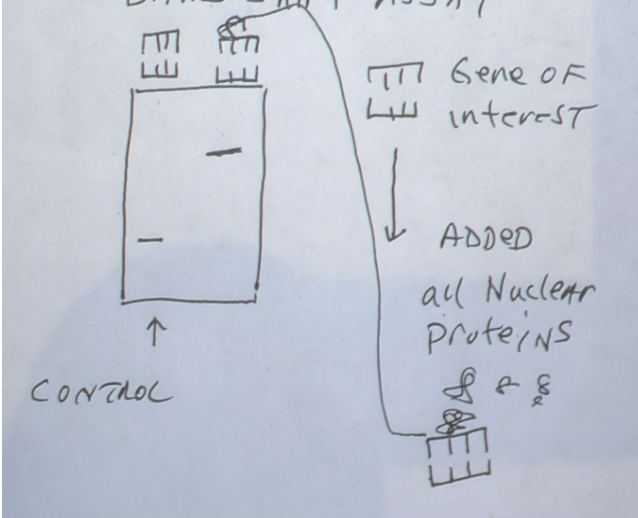 BAND SHIFT ASSAY
Gene OF
interest
ADDED
all Nuclear
Proteins
CONTROL